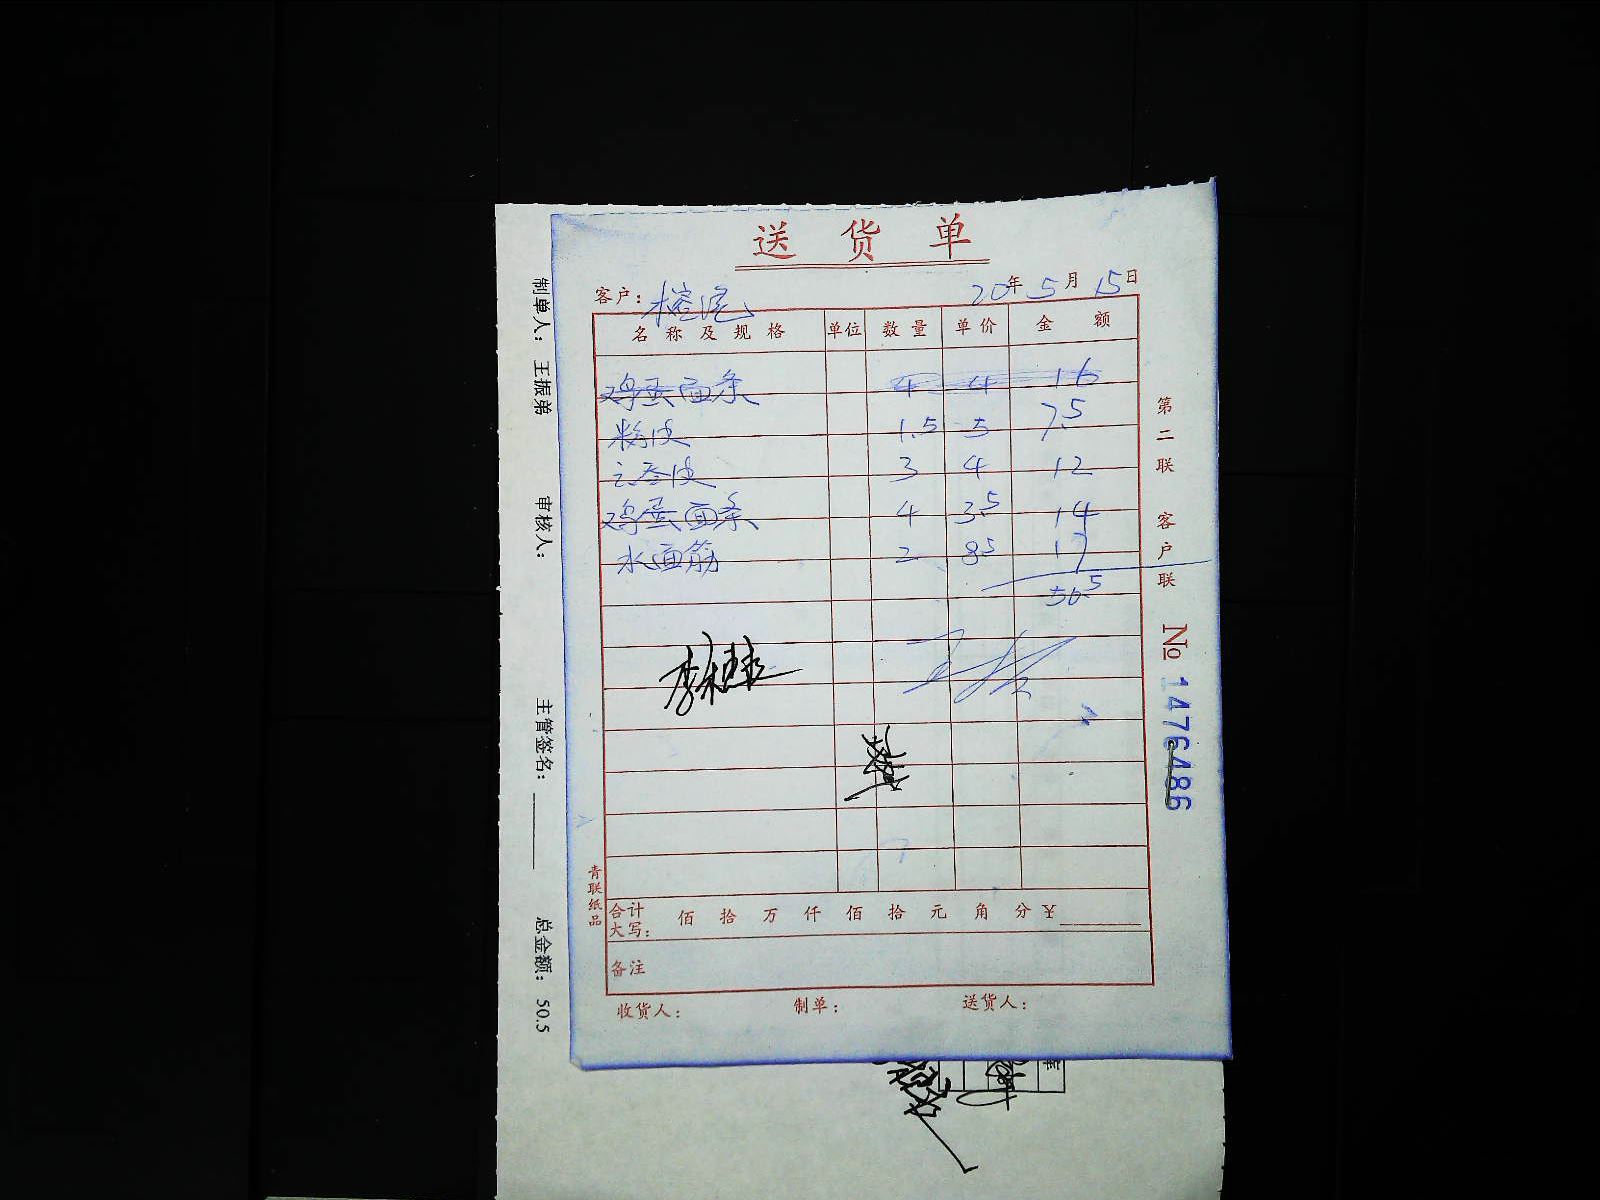 送货单
客户：
20年5月15日
名称及规格 单位 数量 单价 金额
鸡蛋面条 4 4 16
粉皮 1.5 5 7.5
云吞皮 3 4 12
鸡蛋面条 4 3.5 14
水面筋 2 8.5 17
50.5
合计大写： 佰 拾 万 仟 佰 拾 元 角 分 ¥
备注
收货人： 制单： 送货人：
青联纸品
第二联 客户联
No 1476486
制单人： 王振弟 审核人： 主管签名： 总金额： 50.5